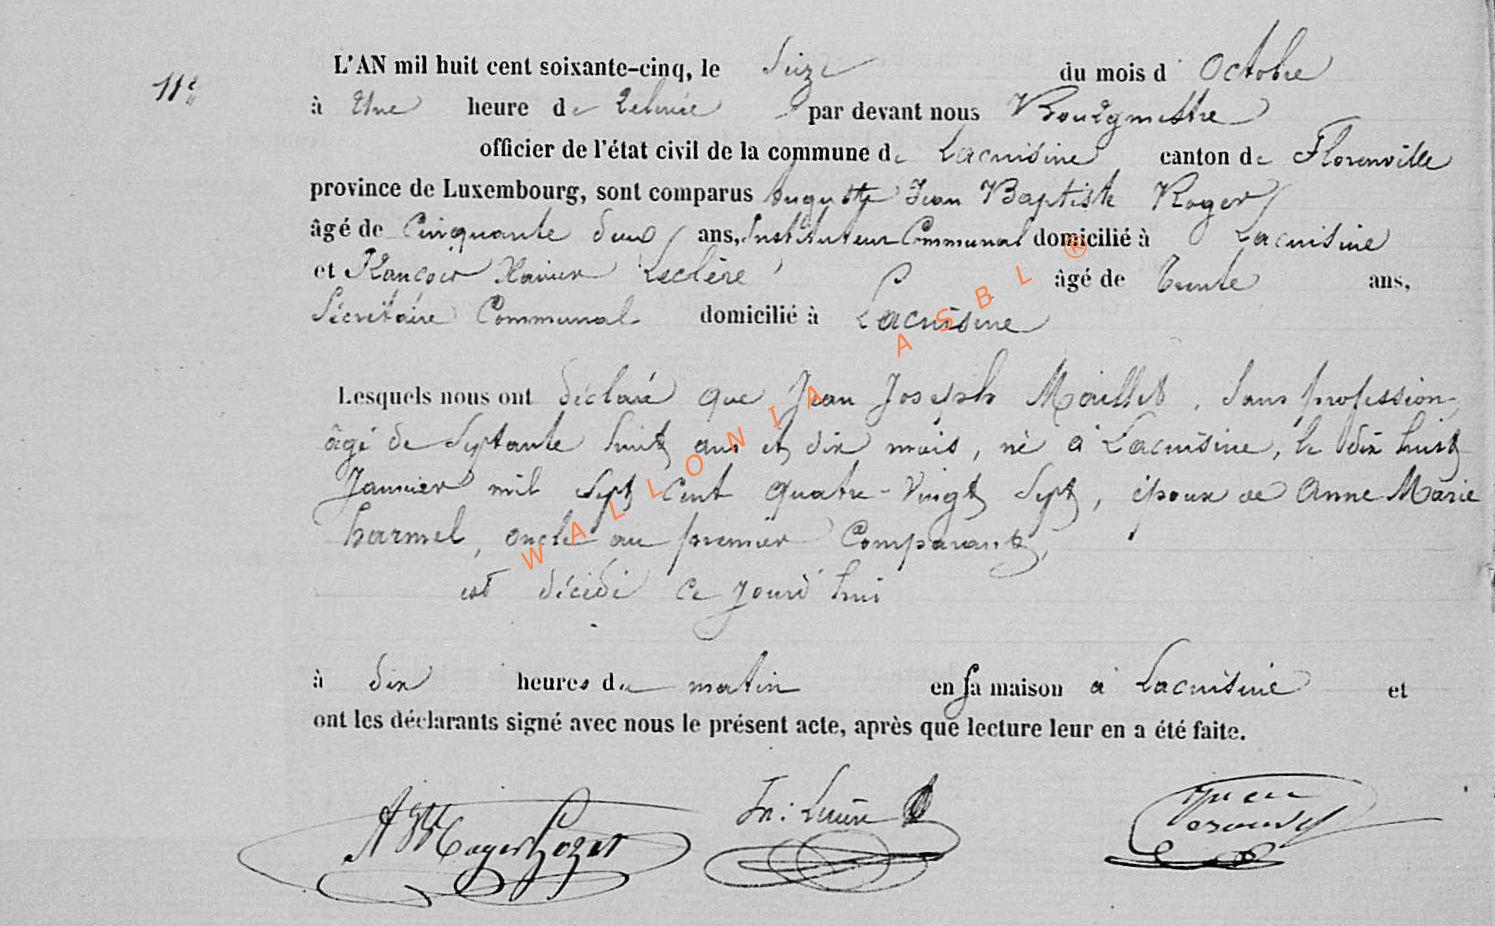 11e
L'AN mil huit cent soixante-cinq, le Seize du mois d'Octobre
à Une heure de relevée par devant nous Bourgmestre
officier de l'état civil de la commune de Lacuisine canton de Florenville
province de Luxembourg, sont comparus Auguste Jean Baptiste Roger
âgé de Cinquante deux ans, Instituteur Communal domicilié à Lacuisine
et François Xavier Leclère âgé de trente ans,
Sécrétaire Communal domicilié à Lacuisine
Lesquels nous ont déclaré que Jean Joseph Maillet, Sans profession,
âgé de Septante huit ans et dix mois, né à Lacuisine, le dix huit
Janvier mil Sept Cent quatre-Vingt Sept, époux de Anne Marie
harmel, oncle au premier Comparant,
est décédé ce jourd'hui
à dix heures du matin en Sa maison à Lacuisine et
ont les déclarants signé avec nous le présent acte, après que lecture leur en a été faite.
WALLONIA ASBL ®